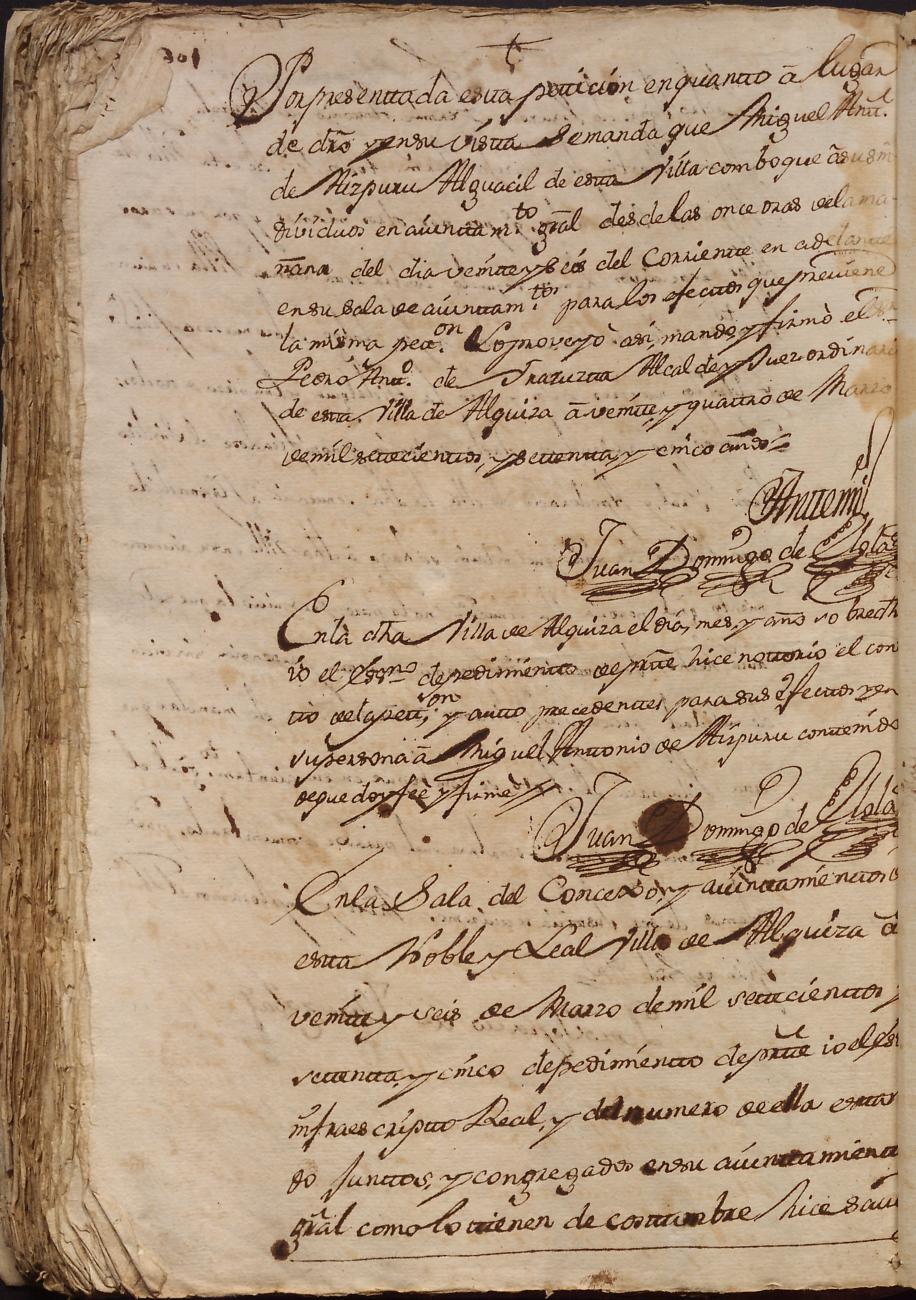 Por presenttada estta petticion en quantto â lugar
de dro y en su Vistta Se manda que Miguel Antt.
de Aizpuru Alguacil de estta Villa comboque â sus in-
dividuos en aiunttam.tto gral desde las once oras de la ma-
ñana del dia veintte y seis del Corrientte en adelantte
en su Sala de aiunttam.tto para los efecttos que previene
la misma pett.on Lo proveyò asi, mando y firmò el
Pedro Antt.o de Irazuztta Alcalde y Juez ordinario
de estta Villa de Alquiza â veintte, y quattro de Marzo
de mil settecienttos, y settentta, y cinco años=
Anttemi
Juan Domingo de
En la dha Villa de Alquiza el dia, mes, y año sobredh
io el Essno de pedimientto de partte hice nottorio el con
tto de la petti.on y autto precedenttes para sus efecttos en
su persona â Miguel Anttonio de Aizpuru conttenido
de que doy feè y firmè
Juan Domingo de
En la Sala del Concexo, y aiunttamienttos
estta Noble y Leal Villa de Alquiza â
veintte y seis de Marzo de mil settecienttos y
settentta, y cinco de pedimientto de partte io el Es
infraescriptto Real, y del numero de ella esttan
do Junttos, y congregados en su aiunttamientt
gral como lo ttienen de costtumbre hice sav